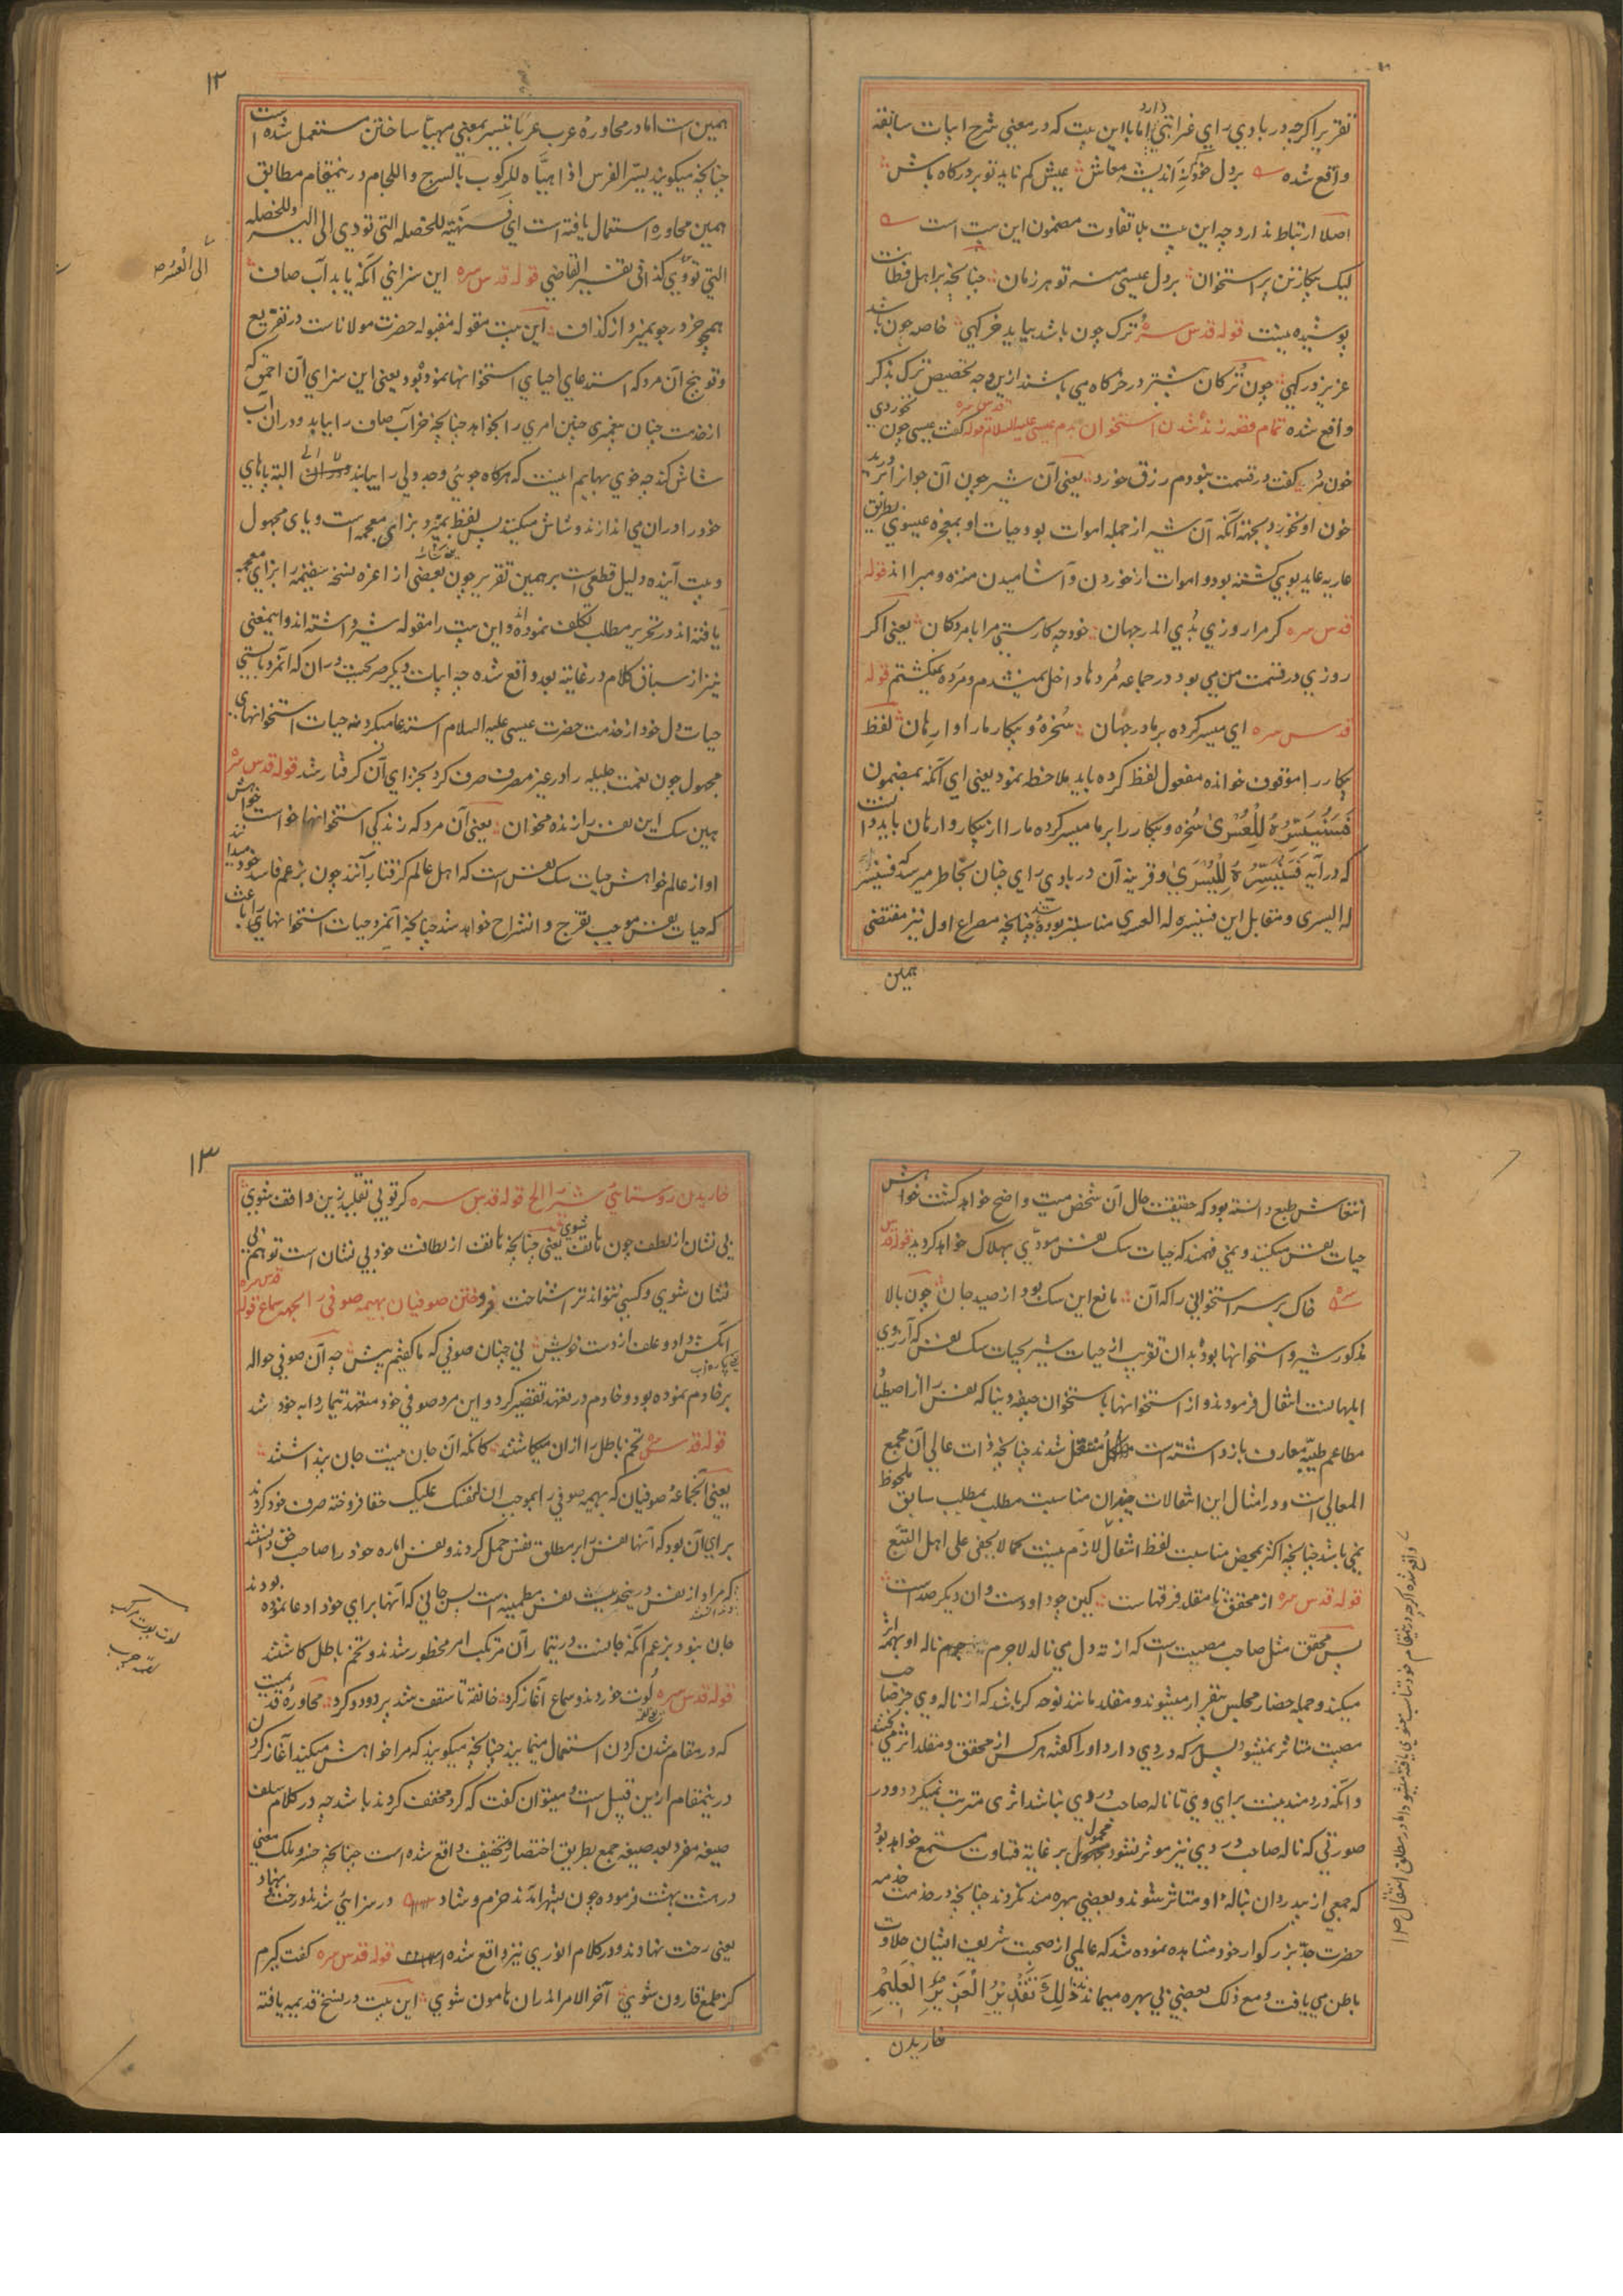 تقریر اکرچه در بادی رای غرابتی دارد اما با این بیت که در معنی شرح ابیات سابقه
واقع شده بر دل خود کم نه اندیشه معاش عیش کم ناید تو بر درکاه باش
اصلا ارتباط ندارد چه این بیت بلا تفاوت مضمون این بیت است
لیک بیکار تن پر استخوان بر دل عیسی منه تو هر زمان چنانچه بر اهل فطانت
پوشیده نیست قوله قدس سره ترک چون باشد بیابد خرکهی خاصه چون باشد
عزیز درکهی چون ترکان بیشتر در خرکاه می باشند ازین وجه تخصیص ترک بذکر
واقع شده تمام قصه زنده شدن استخوان بدم عیسی علیه السلام قوله قدس سره کفت عیسی چون نخوردی
خون مرد کفت در قسمت نبودم رزق خورد یعنی آن شیر چون آن جوانرا درید
خون او نخورد بجهت آنکه آن شیر از جمله اموات بود و حیات او بمعجزه عیسوی بطریق
عاریه عاید بوی کشته بود و اموات از خوردن و آشامیدن منزه و مبرا اند قوله
قدس سره کر مرا روزی بدی اندر جهان خود چه کارستی مرا با مردکان یعنی اکر
روزی در قسمت من می بود در جماعه مردها داخل نمیشدم و مرده نمیکشتم قوله
قدس سره ای میسر کرده بر ما در جهان سخره و بیکار ما را وارهان لفظ
بیکار را موقوف خوانده مفعول لفظ کرده باید ملاحظه نمود یعنی ای آنکه بمضمون
فَسَنُیَسِّرُهُ لِلْعُسْرَیٰ سخره و بیکار را بر ما میسر کرده ما را از بیکار وارهان باید دانست
که در آیه فَسَنُیَسِّرُهُ لِلْیُسْرَیٰ و قرینه آن در بادی رای چنان بخاطر میرسد که فسنیسر
له الیسری و مقابل این فسنیسره له العسری مناسبتر بوده باشد چنانچه مصراع اول نیز مقتضی
همین
۱۲
همین است اما در محاوره عرب عربا تیسیر بمعنی مهیا ساختن مستعمل شده است
چنانچه میکویند یسّر الفرس اذا هیّاه للرکوب بالسرج و اللجام درینمقام مطابق
همین محاوره استعمال یافته است ای فسنهیّئه للخصله التی تودی الی الیسر و للخصله
التی تودّی کذا فی تفسیر القاضی قوله قدس سره این سزا انی آنکه یابد آب صاف
الی العسر صح
همچو خر در جو بمیزد از کذاف این بیت مقوله مقبوله حضرت مولاناست در تقریع
و توبیخ آن مرد که استدعای احیای استخوانها نموده بود یعنی این سزای آن احمق که
از خدمت چنان پیغمبری چنین امری را بخواهد چنانچه خر آب صاف را بیابد و در ان آب
شاش کند چه خوی بهایم اینست که هرکاه جوئی وجدولی را بیابند البته پاهای
خود را دران می اندازند و شاش میکنند پس لفظ بمیزد بزای معجمه است و یای مجهول
و بیت آینده دلیل قطعی است بر همین تقریر چون بعضی از اعزه نسخه سقیمه را بزای معجمه
یافته اند در تحریر مطلب تکلف نموده اند و این بیت را مقوله شیر داشته اند و اینمعنی
نیز از سیاق کلام در غایته بعد واقع شده چه ابیات دیکر صریحیست دران که آنمرد بایستی
حیات دل خود از خدمت حضرت عیسی علیه السلام استدعا میکرد نه حیات استخوانهای
مجهول چون نعمت جلیله را در غیر مصرف صرف کرد بجزای آن کرفتار شد قوله قدس سره
هین سک این نفس را زنده مخوان یعنی آن مرد که زندکی استخوانها خواست خواهش
او از عالم خواهش حیات سک نفس است که اهل عالم کرفتار آنند چون بزعم فاسد خود میدانند
که حیات نفس موجب تفرج و انشراح خواهد شد چنانچه آنمرد حیات استخوانهای را باعث
انتعاش طبع دانسته بود که حقیقت حال آن شخص میت واضح خواهد کشت خواهش
حیات نفس میکنند و نمی فهمند که حیات سک نفس مودّی بهلاک خواهد کردید قوله قدس
سره خاک بر سر استخوانی را که آن مانع این سک بود از صید جان چون بالا
مذکور شیر و استخوانها بود بدان تقریب از حیات شیر بحیات سک نفس که آرزوی
ابلهانست انتقال فرمودند و از استخوانها باستخوان جیفه دنیا که نفس را از اصطیاد
مطاعم طیبه معارف باز داشته است منتقل شدند چنانچه ذات عالی آن مجمع
المعالی است و در امثال این انتقالات چندان مناسبت مطلب بمطلب سابق ملحوظ
نمی باشد چنانچه اکثر بمحض مناسبت لفظ انتقال لازم نیست کما لا یخفی علی اهل التتبع
قوله قدس سره از محقق تا مقلد فرقهاست کین چو داودست وان دیکر صداست
پس محقق مثل صاحب مصیبت است که از ته دل می نالد لاجرم ناله او بهمه اثر
میکند و جمله حضار مجلس بیقرار میشوند و مقلد مانند نوحه کر باشد که از ناله وی جز صاحب
مصیبت متاثر نمیشود پس هرکه دردی دارد او را کفته هر کس از محقق و مقلد اثر می بخشد
و آنکه دردمند نیست برای وی تا ناله صاحب دردی نباشد اثری مترتب نمیکردد و در
صورتی که ناله صاحب دردی نیز موثر نشود محمول بر غایته قساوت مستمع خواهد بود
که جمعی از بیدردان بناله او متاثر شوند و بعضی بهره مند نکردند چنانچه در خدمت
حضرت جد بزرکوار خود مشاهده نموده شد که عالمی از صحبت شریف ایشان حلاوت
باطن می یافت و مع ذلک بعضی بی بهره میماندند ذٰلِکَ تَقْدِیْرُ الْعَزِیْزِ الْعَلِیْمِ
خاریدن
۱۳
خاریدن روستایی شیر را الخ قوله قدس سره کر تو بی تقلید زین واقف شوی
بی نشان از لطف چون هاتف شوی یعنی چنانچه هاتف از لطافت خود بی نشان است تو هم بی
نشان شوی و کسی نتواند ترا شناخت فروختن صوفیان بهیمه صوفی را بجهه سماع قوله قدس سره
آبکش داد و علف از دست خویش نی چنان صوفی که ما کفتیم پیش چه آن صوفی حواله
بر خادم نموده بود و خادم در تعهد تقصیر کرد و این مرد صوفی خود متعهد تیمار دابه خود شد
قوله قدس سره تخم باطل را ازان میکاشتند کانکه آن جان نیست جان پنداشتند
یعنی آنجماعه صوفیان که بهیمه صوفی را بموجب ان لنفسک علیک حقا فروخته صرف خود کردند
برای آن بود که آنها نفس را بر مطلق نفس حمل کردند و نفس اماره خود را صاحب حق دانستند
که مراد از نفس درینحدیث نفس مطمینه است پس جانی که آنها برای خود ادعا نموده بودند
جان نبود بزعم آنکه جانست در تیمار آن مرتکب امر محظور شدند و تخم باطل کاشتند
قوله قدس سره لوت خوردند و سماع آغاز کرد خانقه تا سقف شد پر دود و کرد محاوره قدیمست
که در مقام شدن کردن استعمال مینمایند چنانچه میکویند که مرا خواهش میکند آغاز کردن
درینمقام ازین قبیل است و میتوان کفت که کرد مخفف کردند باشد چه در کلام سلف
صیغه مفرد بعد صیغه جمع بطریق اختصار و تخفیف واقع شده است چنانچه خسرو ملک معنی
در هشت بهشت فرموده چون بشهر آمدند خرم و شاد در سرائی شدند و رخت نهاد
یعنی رخت نهادند و در کلام انوری نیز واقع شده قوله قدس سره کفت کیرم
کز طمع قارون شوی آخر الامر اندران هامون شوی این بیت در نسخ قدیمه یافته